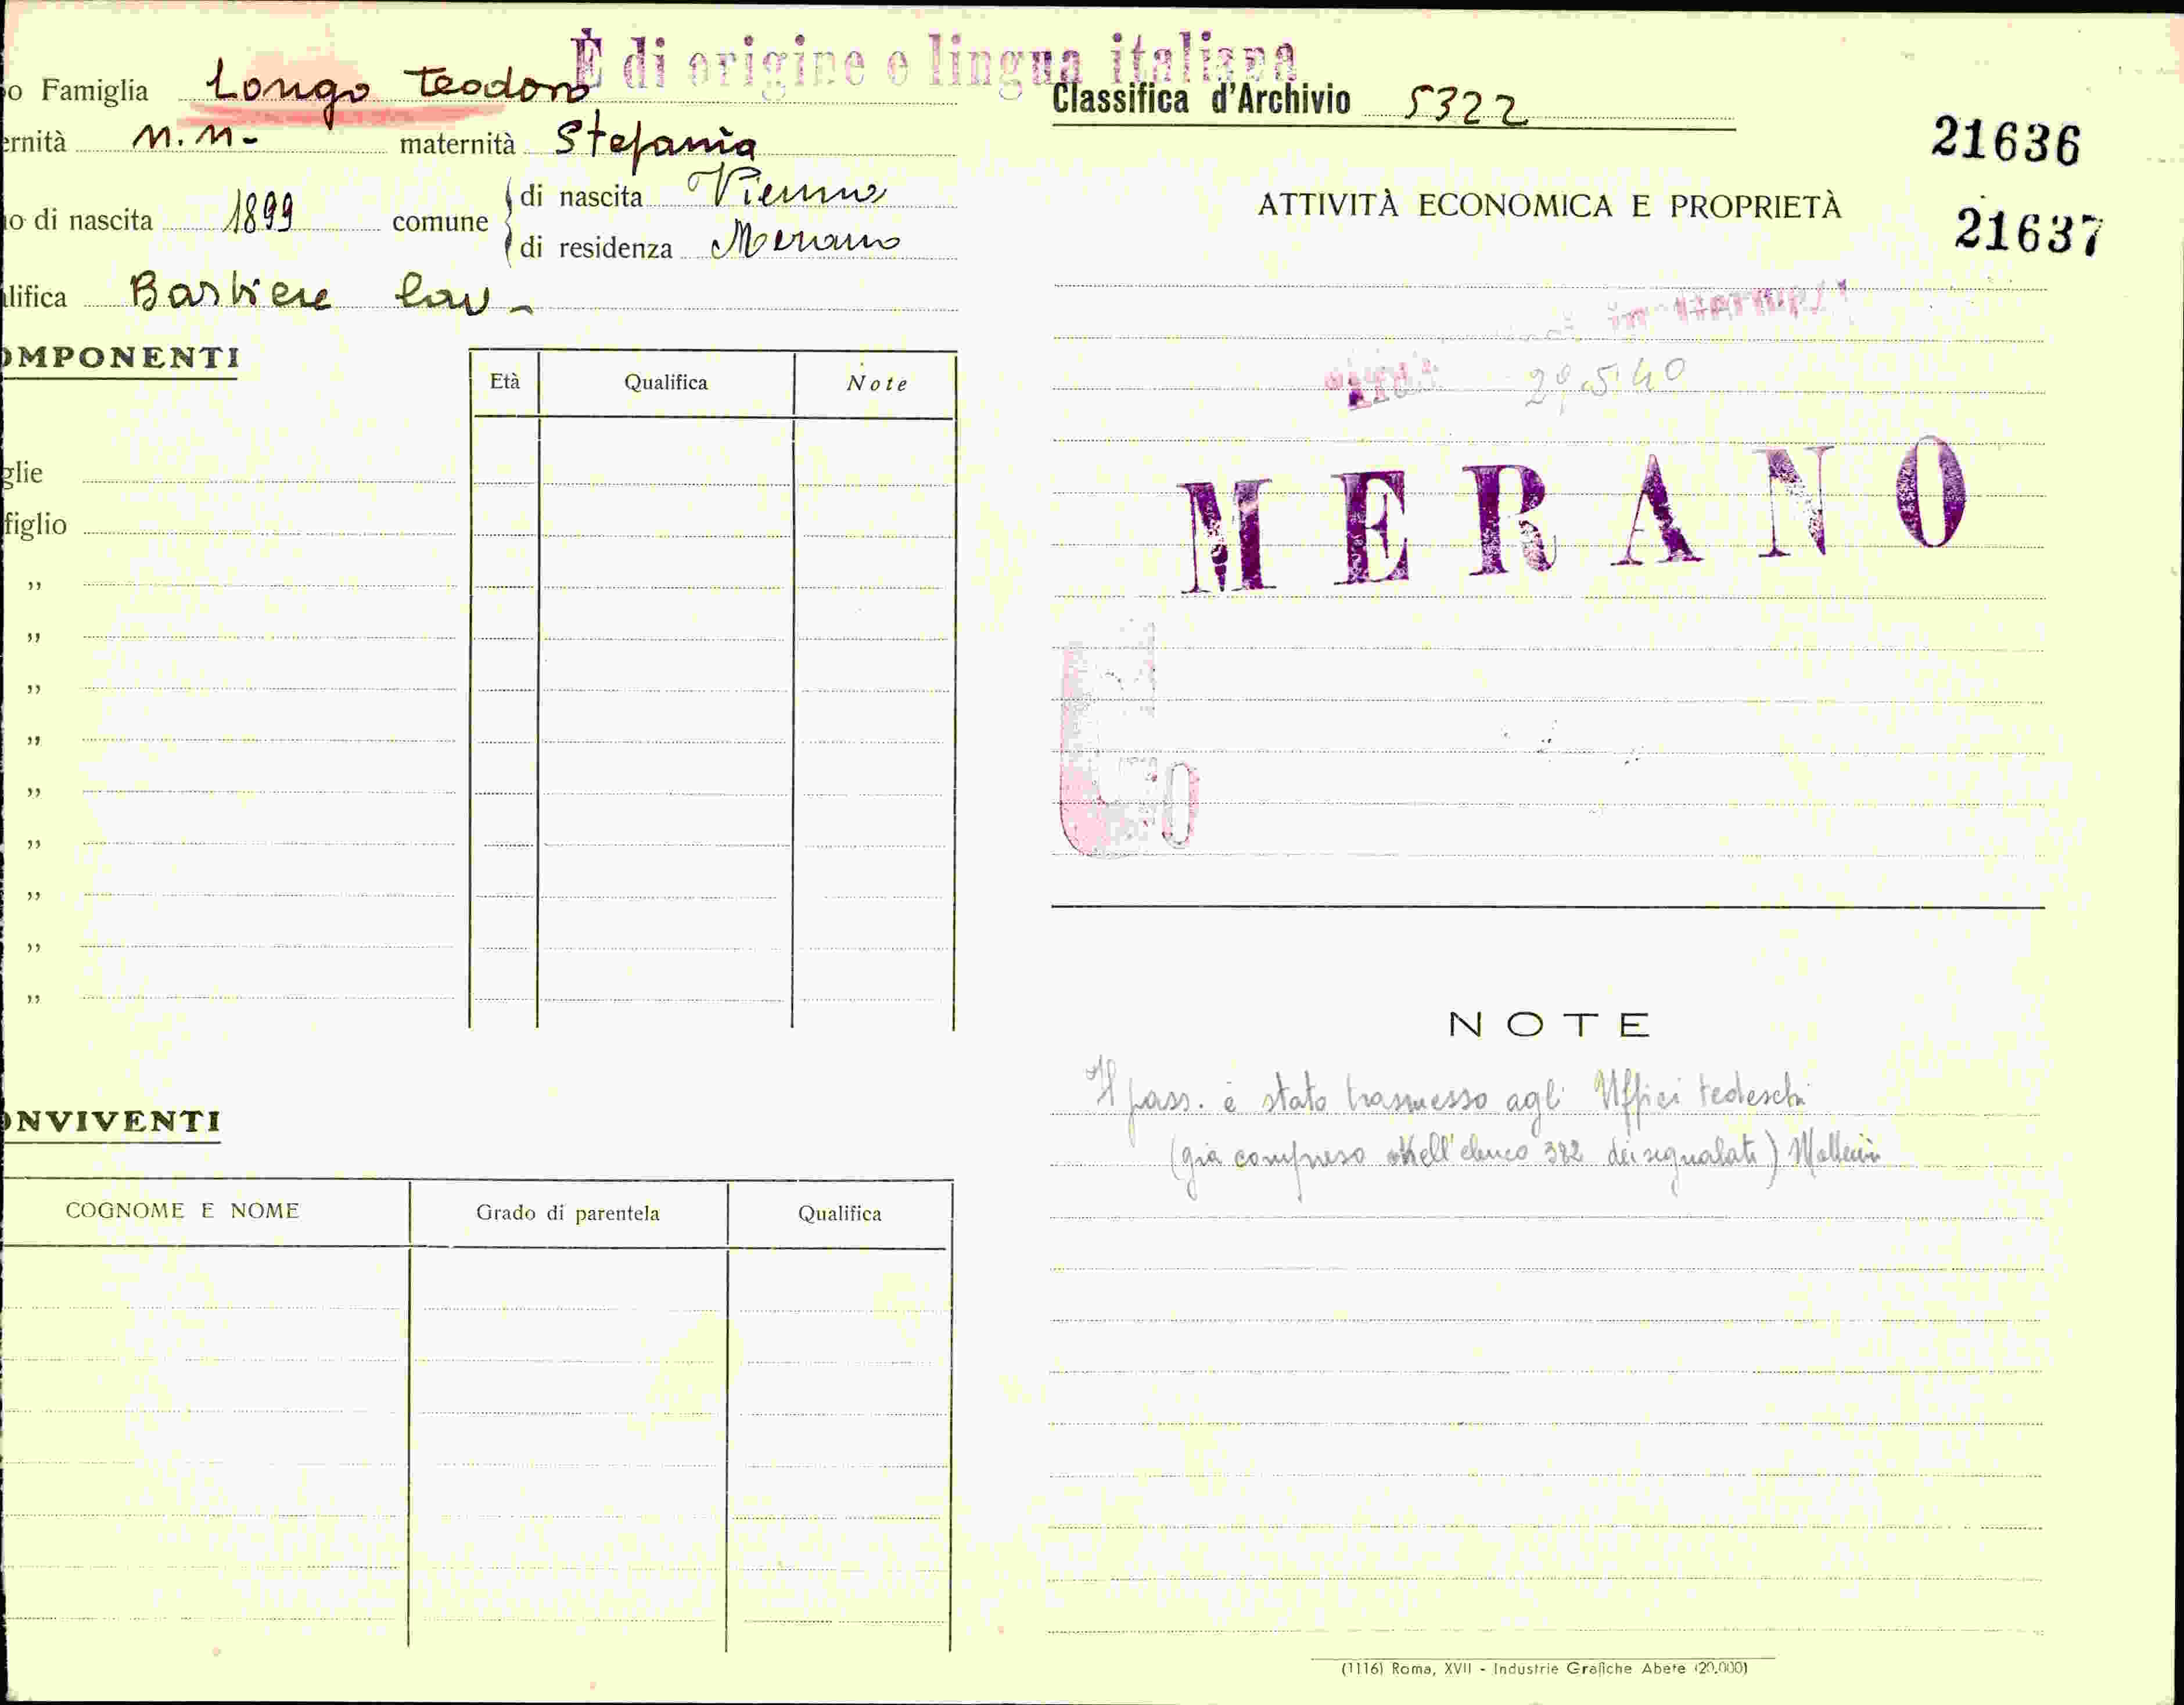 È di origine e lingua italiana
o Famiglia Longo Teodoro
ernità N.N- maternità Stefania
o di nascita 1899 comune di nascita Vienna
di residenza Merano
lifica Barbiere lav -
OMPONENTI
Età Qualifica Note
glie
figlio
”
”
”
”
”
”
”
”
”
ONVIVENTI
COGNOME E NOME Grado di parentela Qualifica
Classifica d'Archivio 5322
21636
21637
ATTIVITÀ ECONOMICA E PROPRIETÀ
in
29.5.40
MERANO
NOTE
Il pass. è stato trasmesso agli Uffici tedeschi
(già compreso nell'elenco 382 dei segnalati)
(1116) Roma, XVII - Industrie Grafiche Abete (20.000)